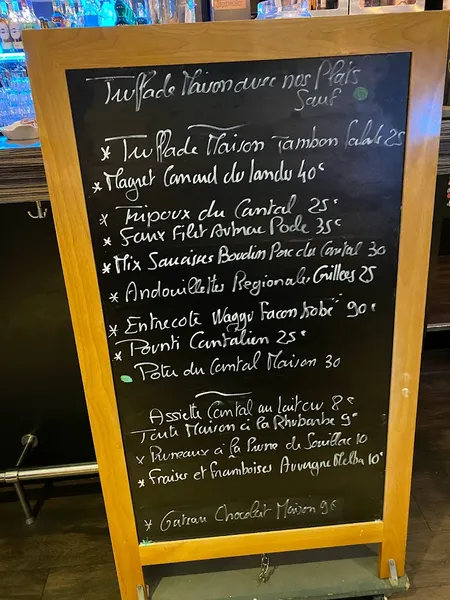 Truffade Maison avec nos Plats
Sauf
* Truffade Maison Jambon Salade 25
* Magret Canard des landes 40€
* Tripoux du Cantal 25€
* Faux Filet Aubrac Poele 35€
* Mix Saucisses Boudin Porc du Cantal 30
* Andouillettes Regionales Grillées 25
* Entrecote Wagyu Facon kobé 90€
* Pounti Cantalien 25€
Potée du Cantal Maison 30
Assiette Cantal au Lait cru 8€
Tarte Maison à la Rhubarbe 9€
x Pruneaux à la Prune de Souillac 10
* Fraises et Framboises Auvergne Melba 10€
* Gateau Chocolat Maison 9€